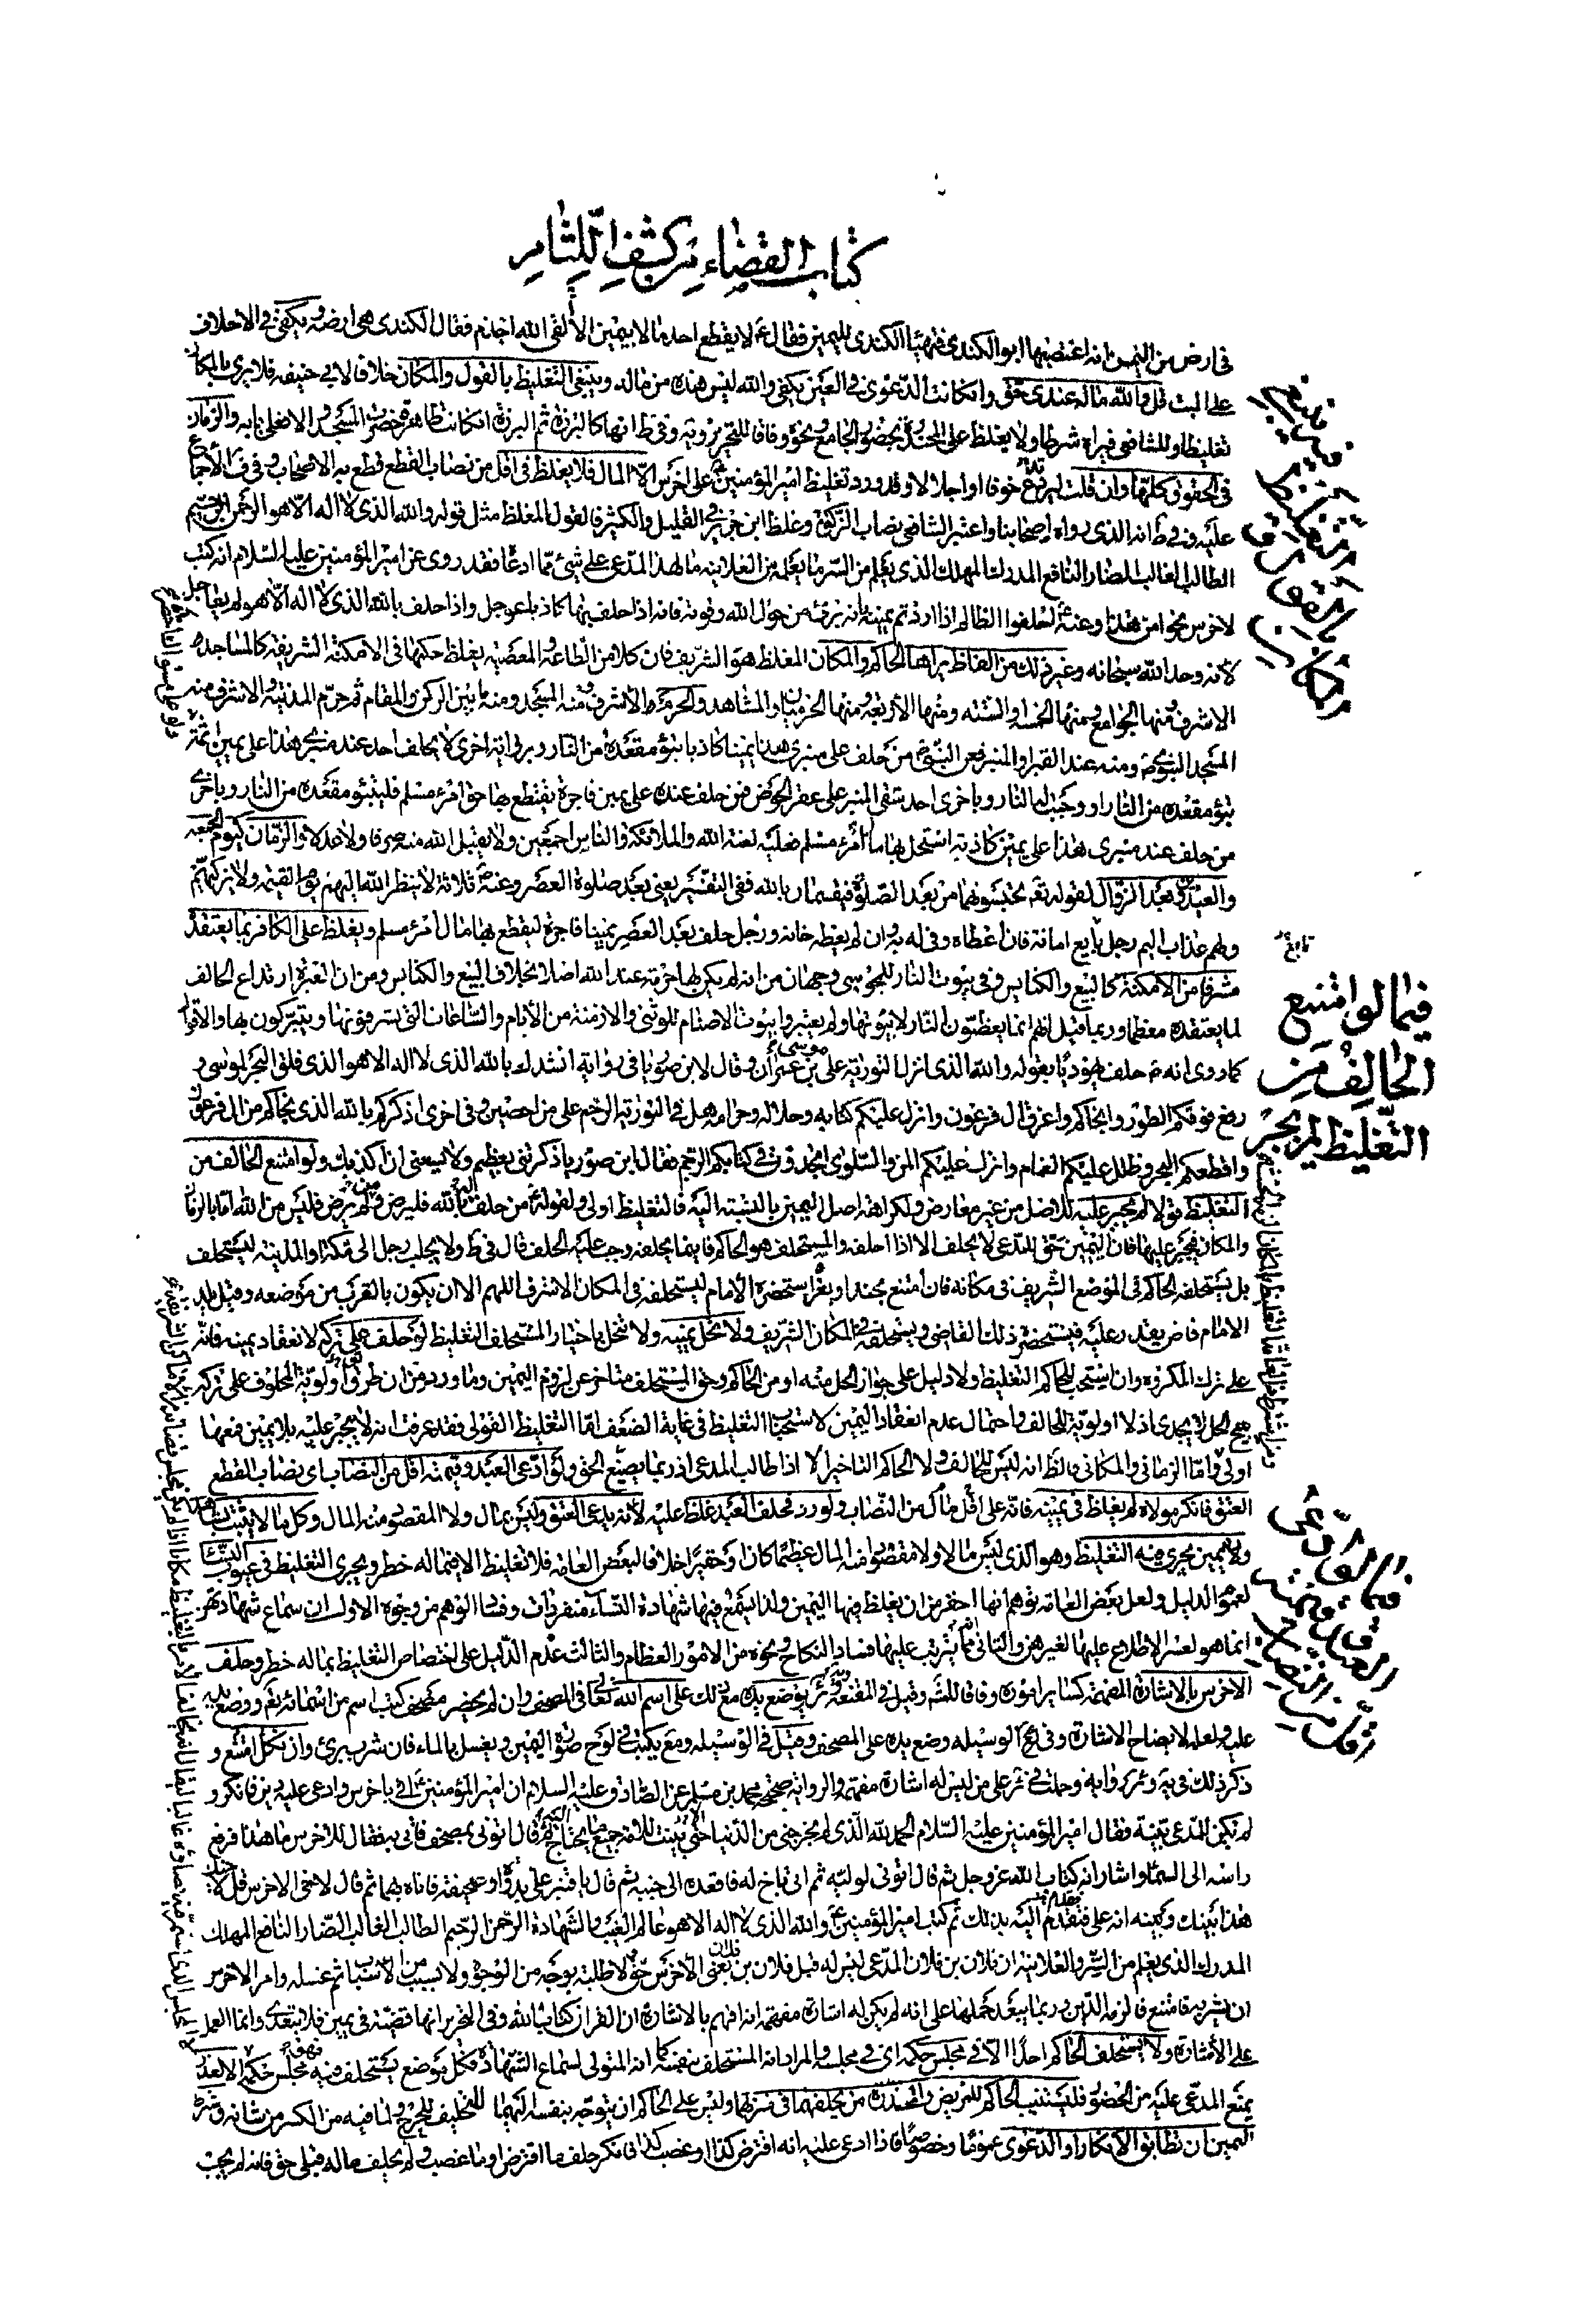 كتاب القضاء من كشف اللثام
في ارض من اليمن انه اغتصبها ابو الكندي فتهيأ الكندي لليمين فقال ع لا يقطع احد مالا بيمين الا لقى الله اجذم فقال الكندي هي ارضه ويكفي في الاحلاف
على البت قل والله ماله عندي حق وان كانت الدعوى في العين يكفي والله ليس هذه من ماله وينبغي التغليظ بالقول والمكان خلافا لابي حنيفه فلا يرى بالمكان
تغليظا وللشافعي فيراه شرطا ولا يغلظ على المخدرة بحضور الجامع ونحوه وفاقا للتحرير وتبه وفي ط انها كالبرزة ثم البرزة ان كانت طاهرة حضرت المسجد والا فعلى بابه والزمان
في الحقوق كلها وان قلت ليرتدع خوفا او اجلالا وقد ورد تغليظ امير المؤمنين على اخرس الا المال فلا يغلظ في اقل من نصاب القطع قطع به الاصحاب وفي ف الاجماع
عليه وفي ط انه الذي رواه اصحابنا واعتبر الشافعي نصاب الزكوة وغلظ ابن جرير في القليل والكثير فالقول المغلظ مثل قوله والله الذي لا اله الا هو الرحمن الرحيم
الطالب الغالب الضار النافع المدرك المهلك الذي يعلم من السر ما يعلمه من العلانيه ما لهذا المدعي علي شئ مما ادعاه فقد روى عن امير المؤمنين عليه السلام انه كتب
لاخرس نحوا من هذا وعنه احلفوا الظالم اذا اردتم يمينه بانه برئ من حول الله وقوته فانه اذا حلف بها كاذبا عوجل واذا حلف بالله الذي لا اله الا هو لم يعاجل
لانه وحد الله سبحانه وغير ذلك من الفاظ يراها الحاكم والمكان المغلظ هو الشريف فان كلا من الطاعة والمعصية يغلظ حكمها في الامكنة الشريفة كالمساجد
الاشرف ومنها الجوامع ومنها الخمسه او الستة ومنها الاربعة ومنها الحرمان والمشاهد والحرم الاشرف منه المسجد ومنه ما بين الركن والمقام ثم حرم المدينة والاشرف منه
المسجد النبوي ص ومنه عند القبر او المنبر فعن النبي ص من حلف على منبري هذا يمينا كاذبا تبوء مقعده من النار وبرواية اخرى لا يحلف احد عند منبري هذا على يمين اثمة
تبوء مقعده من النار او وجبت له النار وباخرى احد شقي المنبر على عقر الحوض فمن حلف عنده على يمين فاجرة يقتطع بها حق امرء مسلم فليتبوء مقعده من النار وباخرى
من حلف عند منبري هذا على يمين كاذبة استحل بها مال امرء مسلم فعليه لعنة الله والملائكة والناس اجمعين ولا يقبل الله منه صرفا ولا عدلا والزمان كيوم الجمعه
والعيد وبعد الزوال لقوله تعم تحبسونهما من بعد الصلوة فيقسمان بالله ففي التفسير يعني بعد صلوة العصر وعنه ص ثلاثة لا ينظر الله اليهم يوم القيمة ولا يزكيهم
ولهم عذاب اليم رجل بايع امامه فان اعطاه وفى له به وان لم يعطه خانه ورجل حلف بعد العصر يمينا فاجرة ليقطع بها مال امرء مسلم ويغلظ على الكافر بما يعتقده
مشرفا من الامكنة كالبيع والكنايس وفي بيوت النار للمجوسي وجهان من انه لم يكن لها حرمة عند الله اصلا بخلاف البيع والكنايس ومن ان العبرة ارتداع الحالف
لما يعتقده معظما وربما قيل انهم انما يعظمون النار لا بيوتها ولم يعتبروا بيوت الاصنام للوثني والازمنة من الايام والساعات التي يشرفونها ويتبركون بها والاقوال
كما روى انه ص حلف يهوديا بقوله والله الذي انزل التورية على موسى بن عمران وقال لابن صوريا في رواية انشدك بالله الذي لا اله الا هو الذي فلق البحر لموسى و
رفع فوقكم الطور وانجاكم واغرق ال فرعون وانزل عليكم كتابه وحلاله وحرامه هل في التورية الرجم على من احصن وفي اخرى اذكركم بالله الذي نجاكم من ال فرعون
واقطعكم البحر وظلل عليكم الغمام وانزل عليكم المن والسلوى اتجدون في كتابكم الرجم فقال ابن صوريا ذكرتني بعظيم ولا يسعني ان اكذبك ولو امتنع الحالف من
التغليظ قولا لم يجبر عليه للاصل من غير معارض ولكراهة اصل اليمين بالنسبة اليه فالتغليظ اولى ولقوله من حلف له بالله فليرض ومن لم يرض فليس من الله اما بالزمان
والمكان فيجبر عليها فان اليمين حق للمدعي لا يحلف الا اذا احلفه والمستحلف هو الحاكم فاينما يحلفه وجب عليه الحلف قال في ط ولا يجلب رجل الى مكة او المدينة ليستحلف
بل يستحلفه الحاكم في الموضع الشريف في مكانه فان امتنع بجند او بعز استحضره الامام ليستحلفه في المكان الاشرف اللهم الا ان يكون بالقرب من موضعه وقيل بلد
الامام قاض يقدر عليه فيستحضر ذلك القاضي ويستحلفه في المكان الشريف ولا تحل يمينه ولا تنحل باختيار المستحلف التغليظ لو حلف على تركه لانعقاد يمينه فانه
على ترك المكروه وان استحب للحاكم التغليظ ولا دليل على جواز الحل منه او من الحاكم وحق المستحلف متاخر عن لزوم اليمين وما ورد من ان طرو اولوية المحلوف على تركه
يبيح الحل لا يجدي اذ لا اولوية للحالف واحتمال عدم انعقاد اليمين لاستحباب التغليظ في غاية الضعف اما التغليظ القولي فقد عرفت انه لا يجبر عليه بلا يمين فمعها
اولى واما الزماني والمكاني فالظ انه ليس للحالف ولا الحاكم التاخير الا اذا طالب المدعي اذ ربما يضيع الحق ولو ادعى العبد وقيمته اقل من النصاب اي نصاب القطع
العتق فانكر مولاه لم يغلظ في يمينه فانه على اقل مال من النصاب ولو رد فحلف العبد غلظ عليه لانه يدعي العتق وليس بمال ولا المقصود منه المال وكل ما لا يثبت بشاهد
ويمين يجري فيه التغليظ وهو الذي ليس مالا ولا مقصودا منه المال عظيما كان او حقيرا خلافا لبعض العامة فلا تغليظ الا فيما له خطر ويجري التغليظ في عيوب النساء
لعموم الدليل ولعل بعض العامة توهم انها احقر من ان يغلظ فيها اليمين ولذا يسمع فيها شهادة النساء منفردات وفساد الوهم من وجوه الاول ان سماع شهادتهن
انما هو لعسر الاطلاع عليها لغيرهن والثاني انه يترتب عليها فساد النكاح ونحوه من الامور العظام والثالث عدم الدليل على اختصاص التغليظ بما له خطر وحلف
الاخرس بالاشارة المفهمة كساير اموره وفاقا للمشهور وقيل في المقنعة يوضع يده مع ذلك على اسم الله تعالى في المصحف وان لم يحضر مصحف كتب اسم من اسمائه تعم ووضع يده
عليه ولعله لايضاح الاشارة وفي الوسيله وضع يده على المصحف وقيل في الوسيله ومع يكتب في لوح صورة اليمين ويغسل بالماء فان شرب برئ وان نكل امتنع و
ذكر ذلك في يه رواية وحملت في ئر على من ليس له اشارة مفهمة والرواية صحيحة محمد بن مسلم عن الصادق عليه السلام ان امير المؤمنين ع اتي باخرس وادعى عليه دين فانكر و
لم يكن للمدعي بينة فقال امير المؤمنين عليه السلام الحمد لله الذي لم يخرجني من الدنيا حتى بينت للامة جميع ما يحتاج اليه ثم قال ائتوني بمصحف فاتي به فقال للاخرس ما هذا فرفع
راسه الى السماء واشار انه كتاب الله عز وجل ثم قال ائتوني بوليه ثم اتي باخ له فاقعده الى جنبه ثم قال يا قنبر علي بدواة وصحيفة فاتاه بهما ثم قال لاخي الاخرس قل لاخيك
هذا بينك وبينه انه علي فتقدم اليه بذلك ثم كتب امير المؤمنين ع والله الذي لا اله الا هو عالم الغيب والشهادة الرحمن الرحيم الطالب الغالب الضار النافع المهلك
المدرك الذي يعلم من السر والعلانية ان فلان بن فلان المدعي ليس له قبل فلان بن فلان يعني الاخرس حق ولا طلبة بوجه من الوجوه ولا بسبب من الاسباب ثم غسله وامر الاخرس
ان يشربه فامتنع فالزمه الدين وربما يبعد حملها على انه لم يكن له اشارة مفهمة انه افهم بالاشارة ان القران كتاب الله وفي التحرير انها قضية في يمين فلا يتعدى وانما العمل
على الاشارة ولا يستحلف الحاكم احدا الا في مجلس حكمه اي في مجلسه والمراد انه المستحلف بنفسه كما انه المتولي لسماع الشهادة فكل موضع يستحلف فيه فهو مجلس حكمه الا لعذر
يمنع المدعى عليه من الحضور فليستنيب الحاكم للمريض والمخدرة من يحلفهما في منزلهما وليس على الحاكم ان يتوجه بنفسه اليهما للتحليف للحرج ولما فيه من الكسر من شانه وشرط
اليمين ان تطابق الانكار او الدعوى عموما وخصوصا فاذا ادعى عليه انه اقترض كذا او غصب كذا فانكر حلف ما اقترض او ما غصب ولم يحلف ماله قبلي حق فانه لم يجب
فيما لو امتنع
الحالف من
التغليظ لم يجبر
فيما لو ادعى
العبد وقيمته
اقل من النصاب